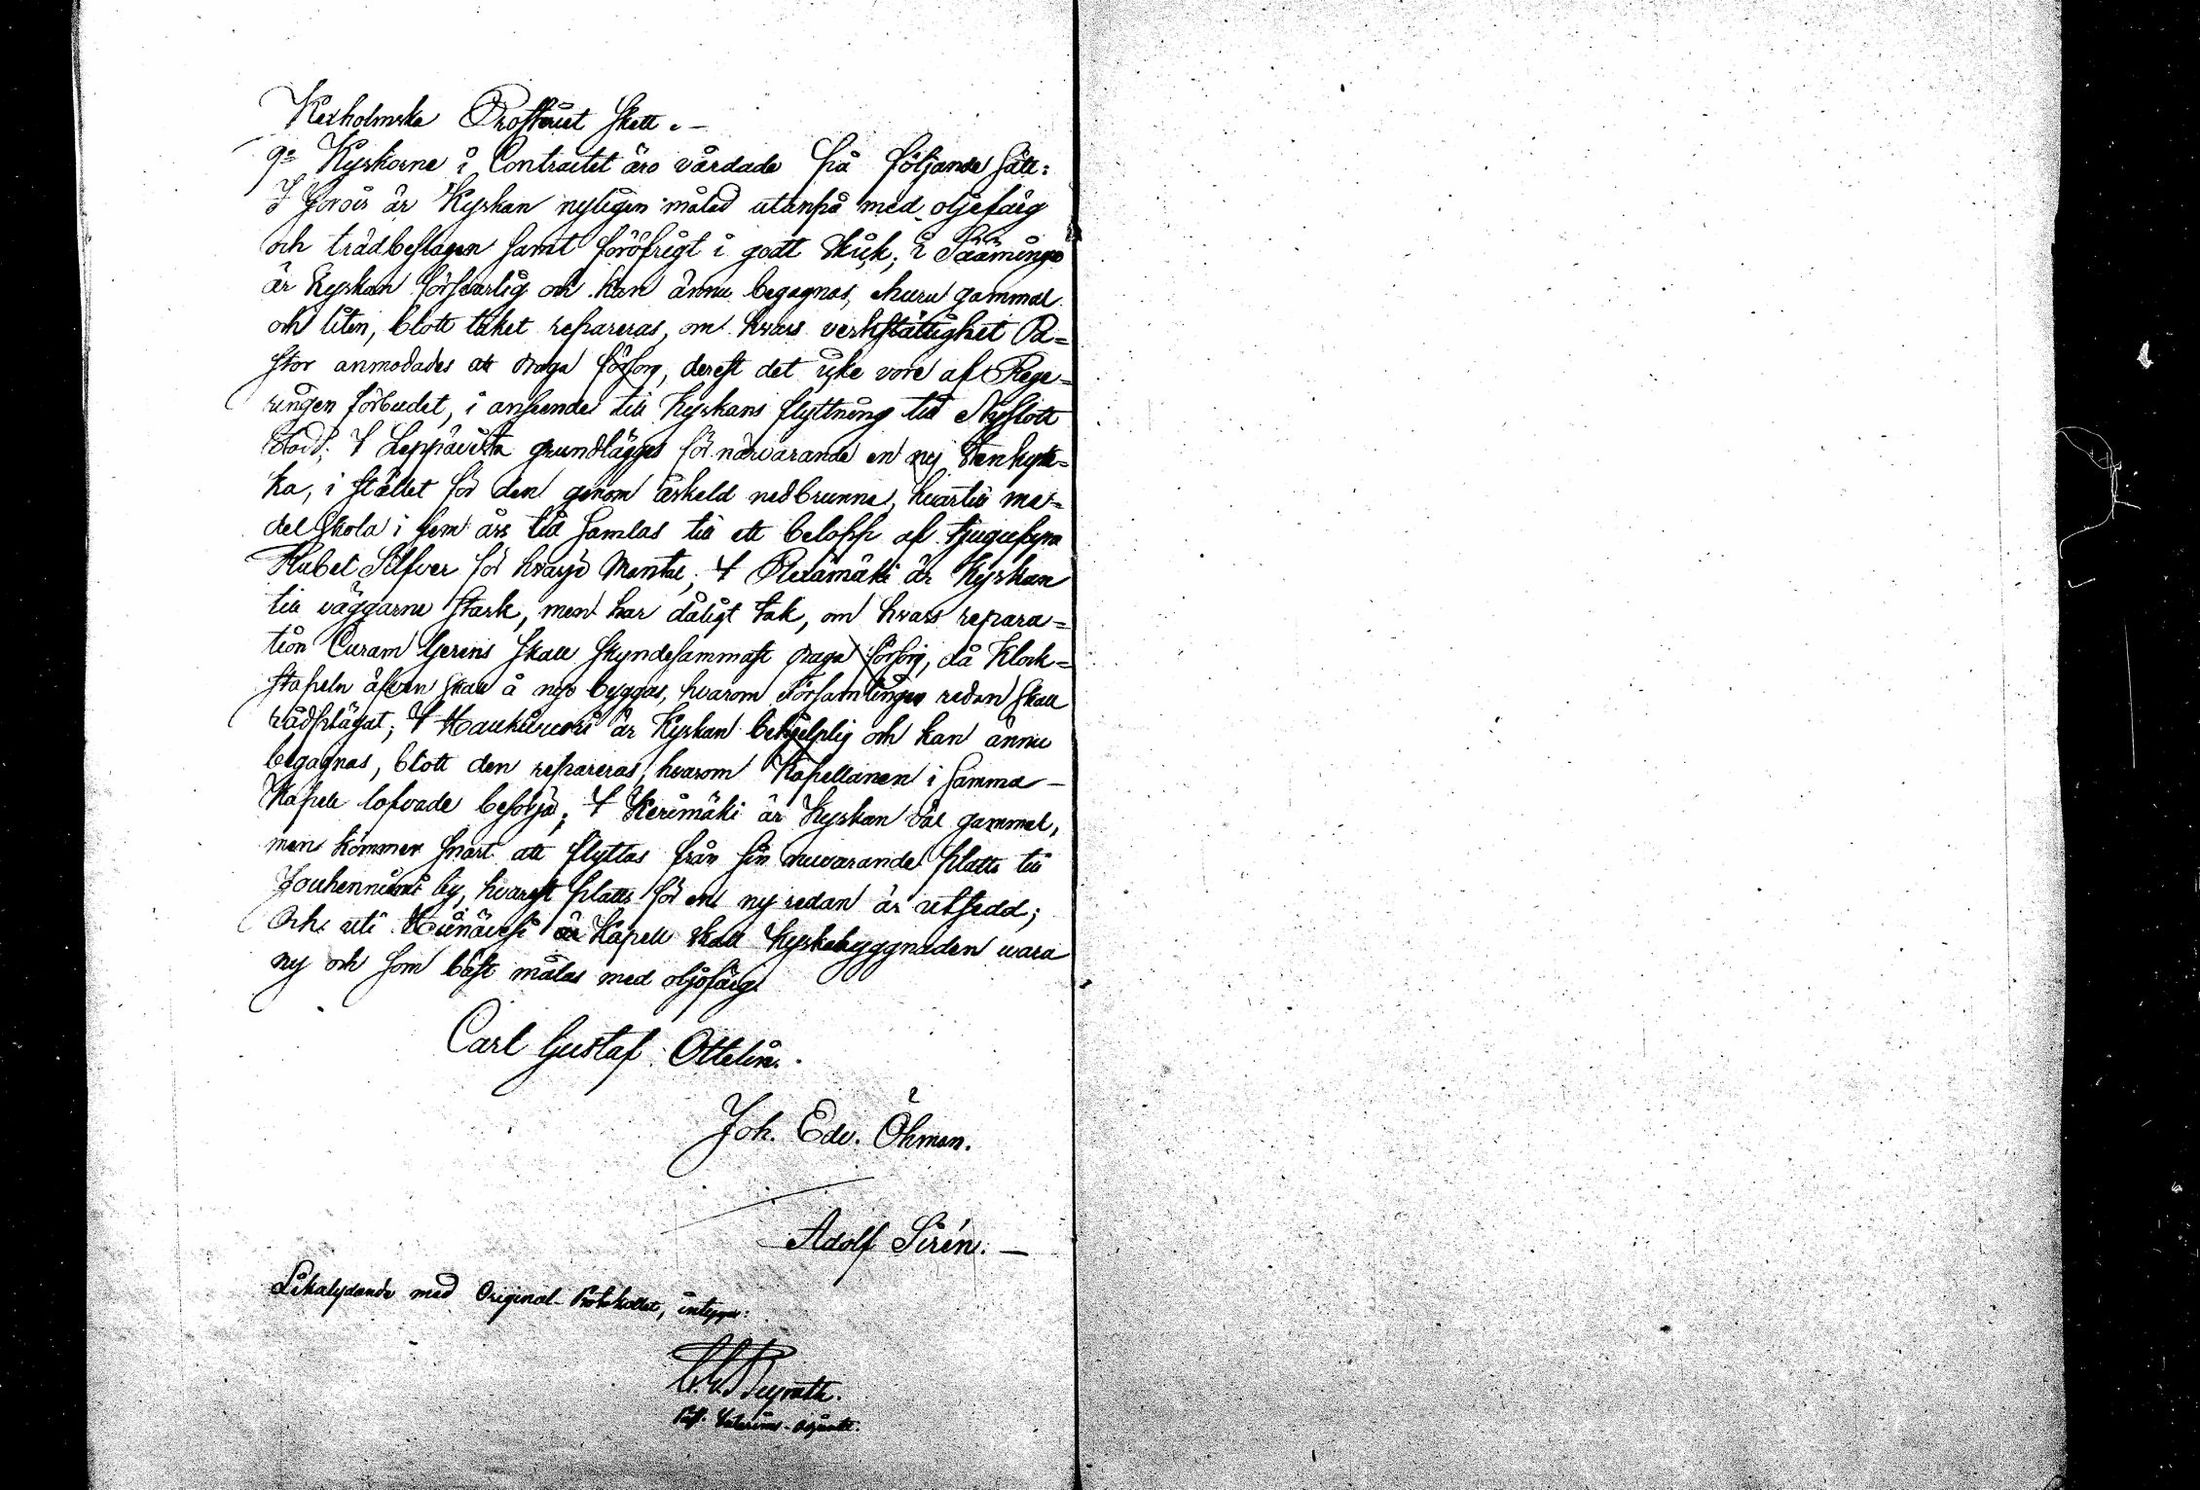 Kexholmska Prosteriet skett. —
9:o Kyrkorne i Contractet äro vårdade på följande sätt:
I Jorois är Kyrkan nyligen målad utanpå med oljefärg
och brädbeslagen samt föröfrigt i godt skick; i Sääminge
är Kyrkan försvarlig och kan ännu begagnas, ehuru gammal
och liten, blott taket repareras, om hvars verkställighet Pa=
stor anmodades att draga försorg, derest det icke vore af Rege=
ringen förbudet, i anseende till Kyrkans flyttning till Nyslott
Stad; I Leppävirta grundlägges för närvarande en ny Stenkyr=
ka, i stället för den genom åskeld nedbrunna, hvartill me=
del skola i fem års tid samlas till ett belopp af tjugufyra
Rubel Silfver för hvarje Mantal; I Rantamäki är Kyrkan
till väggarne stark, men har dåligt tak, om hvars repara=
tion Curam Gerens skall skyndesammast draga försorg, då Klock=
stapeln äfven skall å nyo byggas, hvarom Församlingen redan skall
rådplägat; I Haukivuori är Kyrkan behjelplig och kan ännu
begagnas, blott den repareras, hvarom Kapellanen i samma —
Kapell lofvade besörja; I Kerimäki är Kyrkan väl gammal,
men kommer snart att flyttas från sin nuvarande plats till
Jouhenniemi by, hvarest plats för en ny redan är utsedd;
Och uti Heinävesi Kapell skall Kyrkobyggnaden wara
ny och som bäst målas med oljefärg.
Carl Gustaf Ottelin.
Joh. Edv. Öhman.
Adolf Sirén. —
Likalydande med Original-Protokollet, intygar: